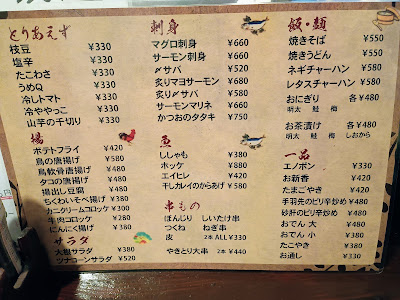 とりあえず
枝豆 ¥330
塩辛 ¥330
たこわさ ¥330
うめQ ¥330
冷しトマト ¥330
冷ややっこ ¥330
山芋の千切り ¥330
揚
ポテトフライ ¥420
鳥の唐揚げ ¥580
鳥軟骨唐揚げ ¥480
タコの唐揚げ ¥480
揚出し豆腐 ¥480
ちくわいそべ揚げ ¥380
カニクリームコロッケ ¥300
牛肉コロッケ ¥300
にんにく揚げ ¥380
サラダ
大根サラダ ¥380
ツナコーンサラダ ¥520
刺身
マグロ刺身 ¥660
サーモン刺身 ¥660
〆サバ ¥520
炙りマヨサーモン ¥680
炙り〆サバ ¥580
サーモンマリネ ¥680
かつおのタタキ ¥750
魚
ししゃも ¥380
ホッケ ¥880
エイヒレ ¥420
干しカレイのからあげ ¥580
串もの
ぼんじり しいたけ串
つくね ねぎ串
皮 2本ALL¥330
やきとり大串 2本 ¥440
飯・麺
焼きそば ¥550
焼きうどん ¥550
ネギチャーハン ¥580
レタスチャーハン ¥580
おにぎり 各¥480
明太 鮭 梅
お茶漬け 各¥480
明太 鮭 梅 しおから
一品
エノポン ¥330
お新香 ¥420
たまごやき ¥420
手羽先のピリ辛炒め ¥480
砂肝のピリ辛炒め ¥480
おでん 大 ¥480
おでん 小 ¥380
たこやき ¥380
お通し ¥330